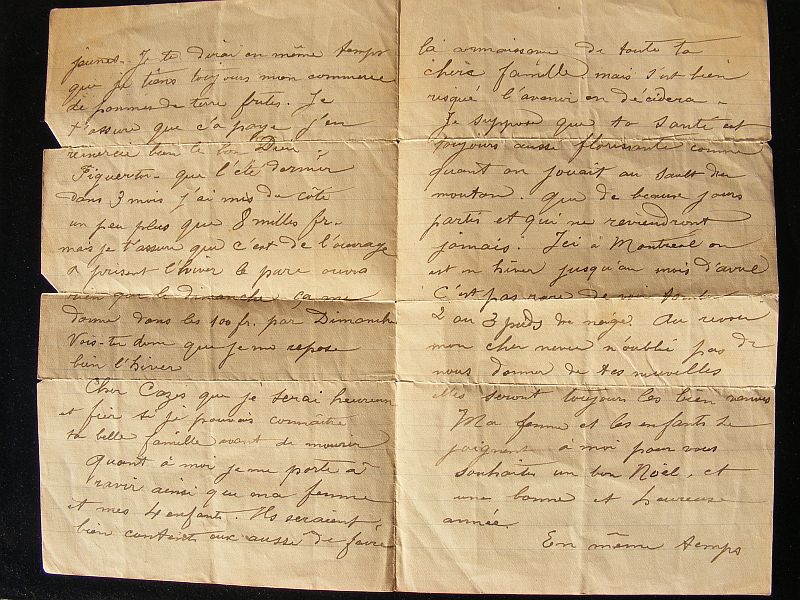 jaunes. Je te dirai en même temps
que je tiens toujours mon commerce
de pommes de terre frites. Je
t'assure que c'a paye j'en
remercie bien le bon Dieu.
Figure toi que l'été dernier
dans 3 mois j'ai mis de côté
un peu plus que 8 milles fr.
mais je t'assure que c'est de l'ouvrage
a présent l'hiver le parc ouvre
rien que le dimanche ca me
donne dans les 100 fr. par Dimanche
Vois-tu donc que je me repose
bien l'hiver
Cher Cazes que je serai heureux
et fier si je pouvais connaître
ta belle famille avant de mourir
Quant à moi je me porte à
ravir ainsi que ma femme
et mes 4 enfants. Ils seraient
bien contents eux aussi de faire
la connaissance de toute ta
chère famille mais s'est bien
risqué l'avenir en décidera.
Je suppose que ta santé est
toujours aussi florissante comme
quant on jouait au sault du
mouton. que de beaux jours
partis et qui ne reviendront
jamais. Ici à Montréal on
est en hiver jusqu'au mois d'avril
C'est pas rare de voir
2 au 3 pieds de neige. Au revoir
mon cher neveu n'oublié pas de
nous donner de tes nouvelles
elles seront toujours les bien venues
Ma femme et les enfants se
joignent à moi pour vous
souhaiter un bon Noël, et
une bonne et heureuse
année.
En même temps